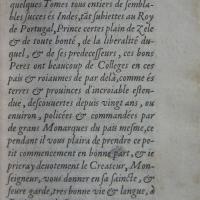 quelques Tomes tous entiers de sembla-
bles succes és Indes, tât subiettes au Roy
de Portugal, Prince certes plain de Zele
& de toute bonté, de la liberalité du-
quel, & de ses predecesseurs, ces bons
Peres ont beaucoup de Colleges en ces
pais & roiaumes de par delà, comme és
terres & prouinces d'incroiable esten-
due, descouuertes depuis vingt ans, ou
enuiron, policées & commandées par
de grans Monarques du pais mesme, ce
pendant il vous plaira de prendre ce pe-
tit commencement en bonne part, & ie
prieray deuotement le Createur, Mon-
seigneur, vous donner en sa saincte, &
seure garde, tres bonne vie & longue, à